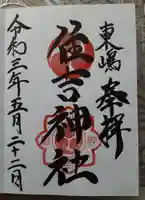 東嶋奉拝
住吉神社
令和三年五月二十二日